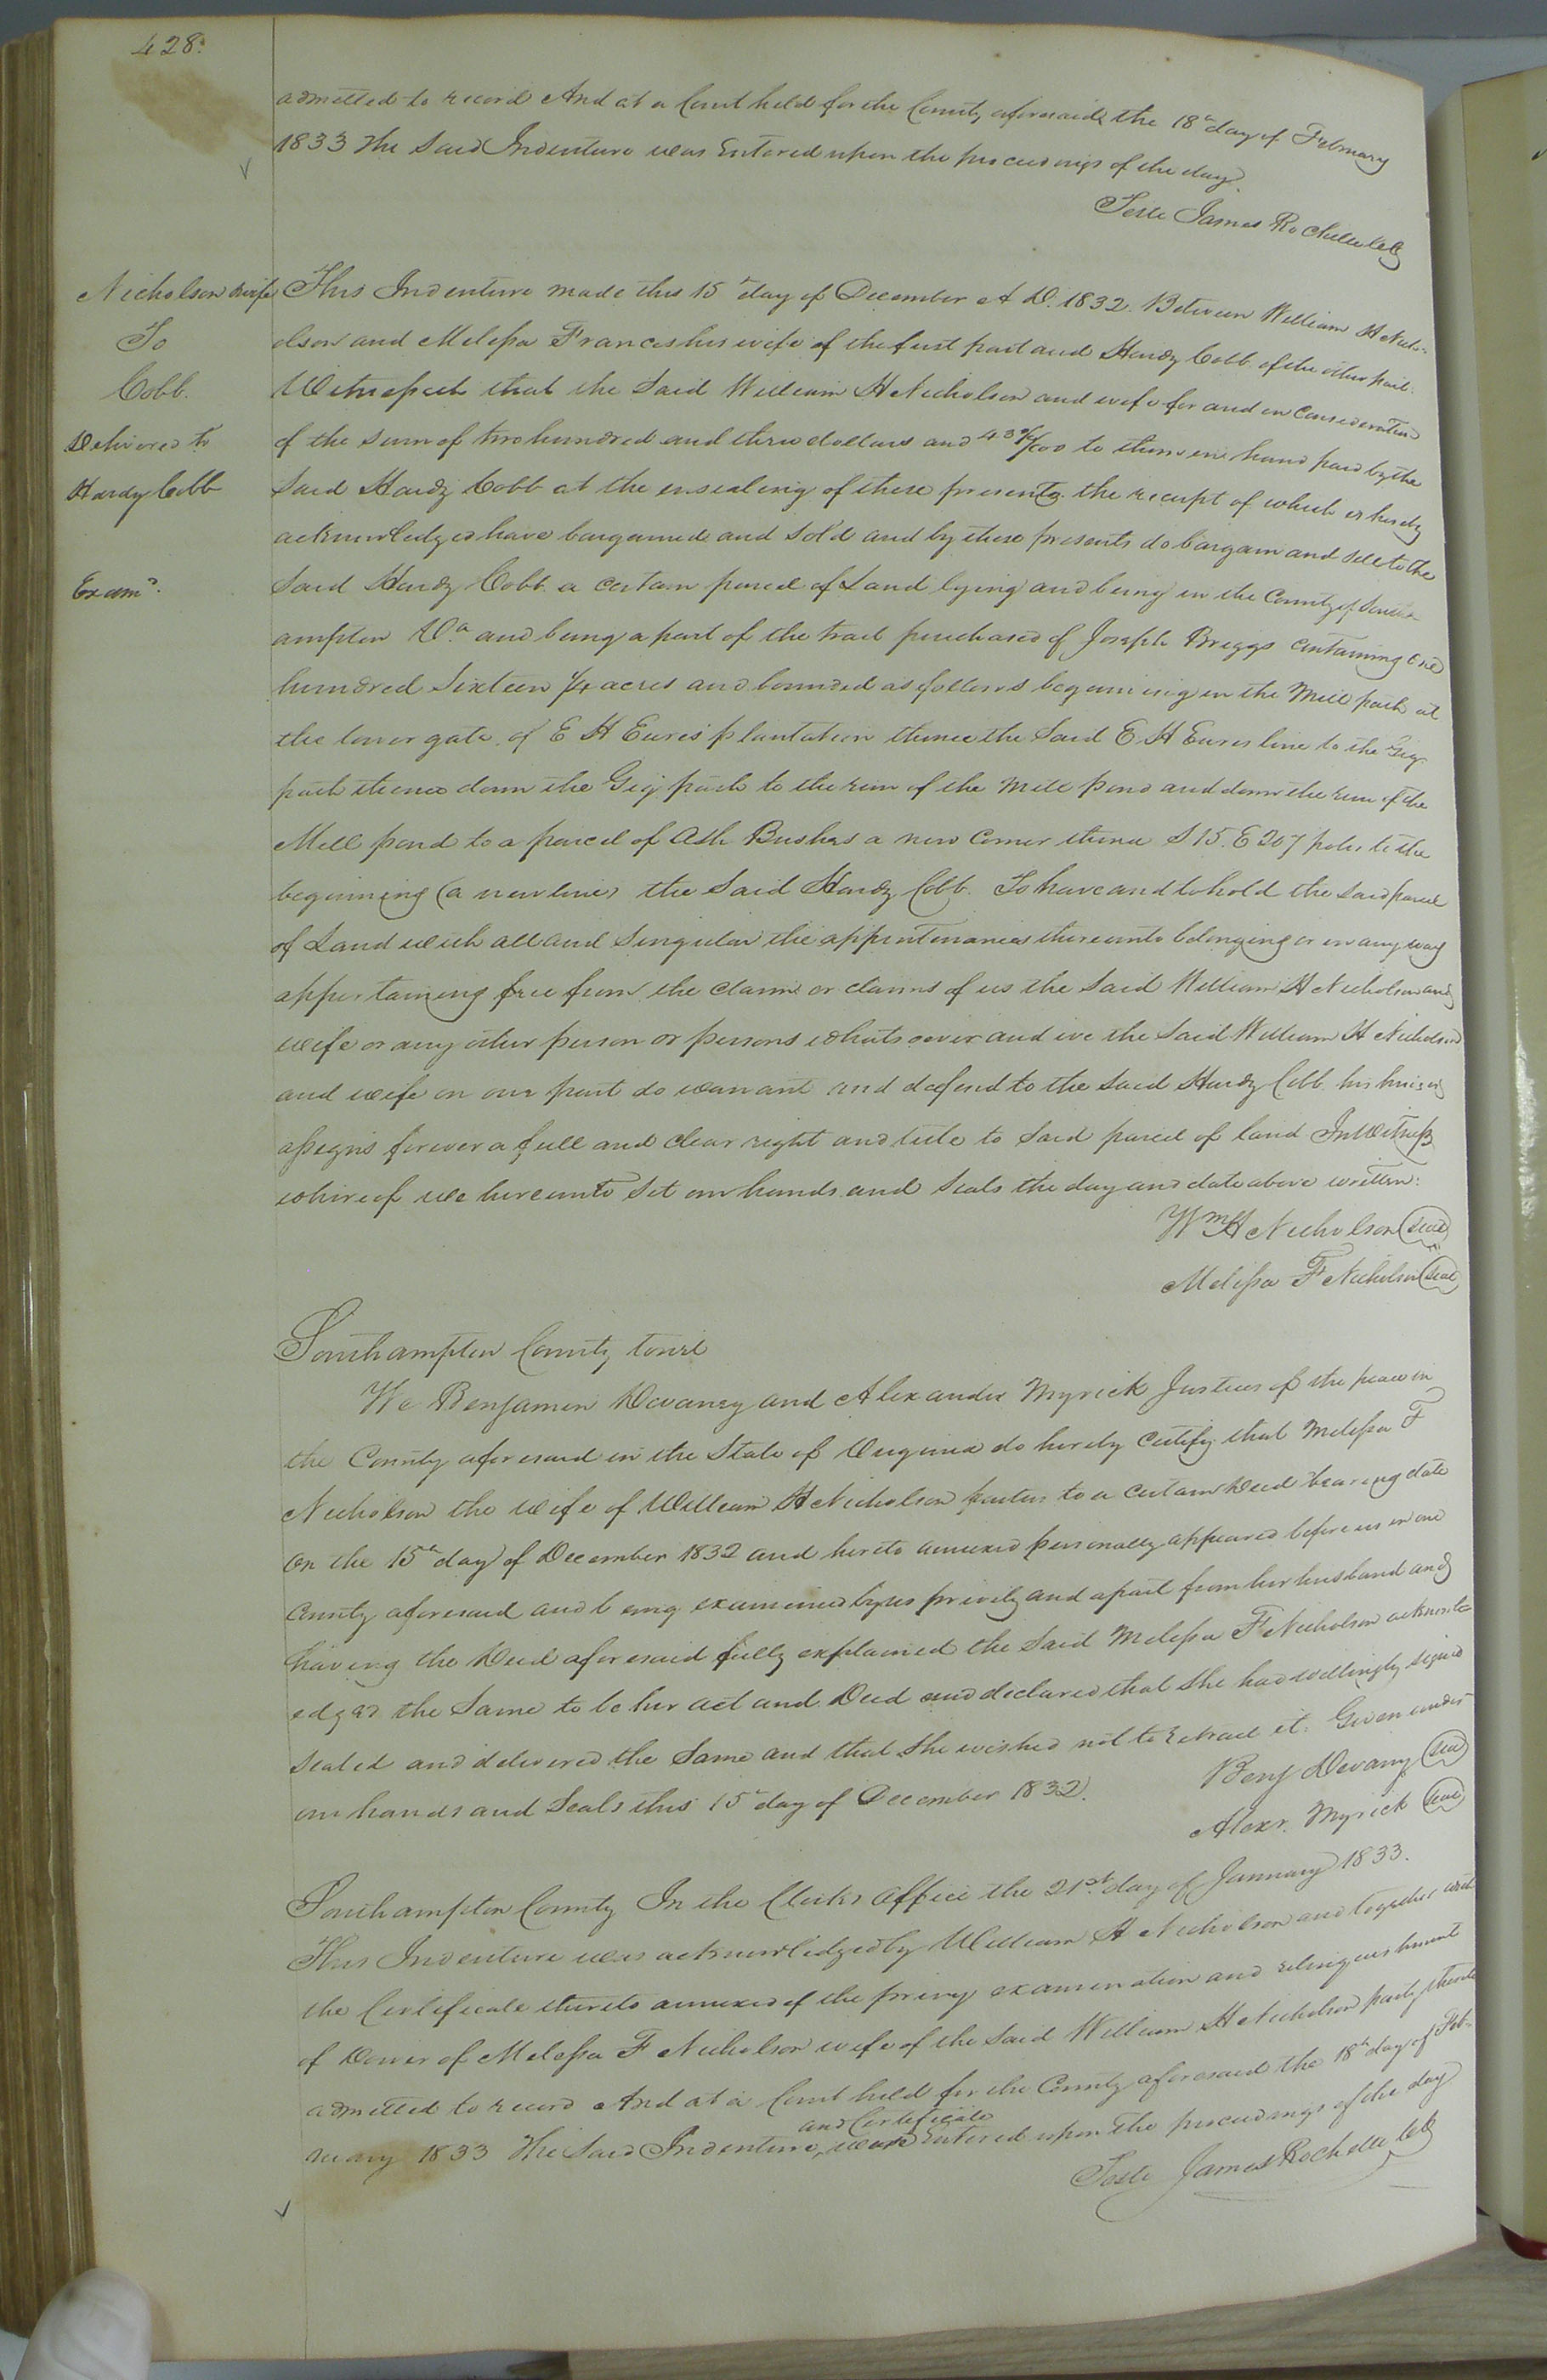 428.
admitted to record And at a Court held for the County aforesaid the 18th day of February
1833 The Said Indenture was Entered upon the proceedings of the day.
Teste James Rochelle Clk
Nicholson & wife
To
Cobb.
Delivered to
Hardy Cobb
Examd.
This Indenture made this 15th day of December A D. 1832. Between William H Nich-
olson and Melissa Frances his wife of the first part and Hardy Cobb of the other part.
Witnesseth that the Said William H Nicholson and wife for and in consideration
of the sum of two hundred and three dollars and 43/100 to them in hand paid by the
Said Hardy Cobb at the ensealing of these presents the receipt of which is hereby
acknowledged have bargained and Sold and by these presents do bargain and sell to the
Said Hardy Cobb a certain parcel of Land lying and being in the County of South-
ampton Va and being a part of the tract purchased of Joseph Briggs containing one
hundred Sixteen 1/4 acres and bounded as follows beginning in the Mill path at
the lower gate of E H Eures plantation thence the Said E H Eures line to the Gig
path thence down the Gig path to the run of the Mill pond and down the run of the
Mill pond to a parcel of Ash Bushes a new Corner thence S 15. E 207 poles to the
beginning (a new line) the Said Hardy Cobb. To have and to hold the said parcel
of Land with all and Singular the appurtenances thereunto belonging or in any way
appertaining free from the claim or claims of us the Said William H Nicholson and
wife or any other person or persons whatsoever and we the Said William H Nicholson
and wife on our part do warrant and defend to the Said Hardy Cobb his heirs or
assigns forever a full and clear right and title to Said parcel of land In Witness
whereof we hereunto Set our hands and Seals the day and date above written.
Wm H Nicholson (seal)
Melissa F Nicholson (seal)
Southampton County towit
We Benjamin Devany and Alexander Myrick Justices of the peace in
the County aforesaid in the State of Virginia do hereby certify that Melissa F
Nicholson the wife of William H Nicholson parties to a certain Deed bearing date
on the 15th day of December 1832 and hereto annexed personally appeared before us in our
County aforesaid and being examined by us privily and apart from her husband and
having the Deed aforesaid fully explained the Said Melissa F Nicholson acknowl-
edged the Same to be her act and Deed and declared that She had willingly signed
sealed and delivered the Same and that She wished not to retract it. Given under
our hands and Seals this 15th day of December 1832.
Benj Devany (seal)
Alexr. Myrick (seal)
Southampton County In the Clerks Office the 21st day of January 1833.
This Indenture was acknowledged by William H Nicholson and together with
the Certificate thereto annexed of the privy examination and relinquishment
of Dower of Melissa F Nicholson wife of the Said William H Nicholson party thereto
admitted to record And at a Court held for the County aforesaid the 18th day of Feb-
ruary 1833 The Said Indenture and Certificate were Entered upon the proceedings of the day
Teste James Rochelle Clk